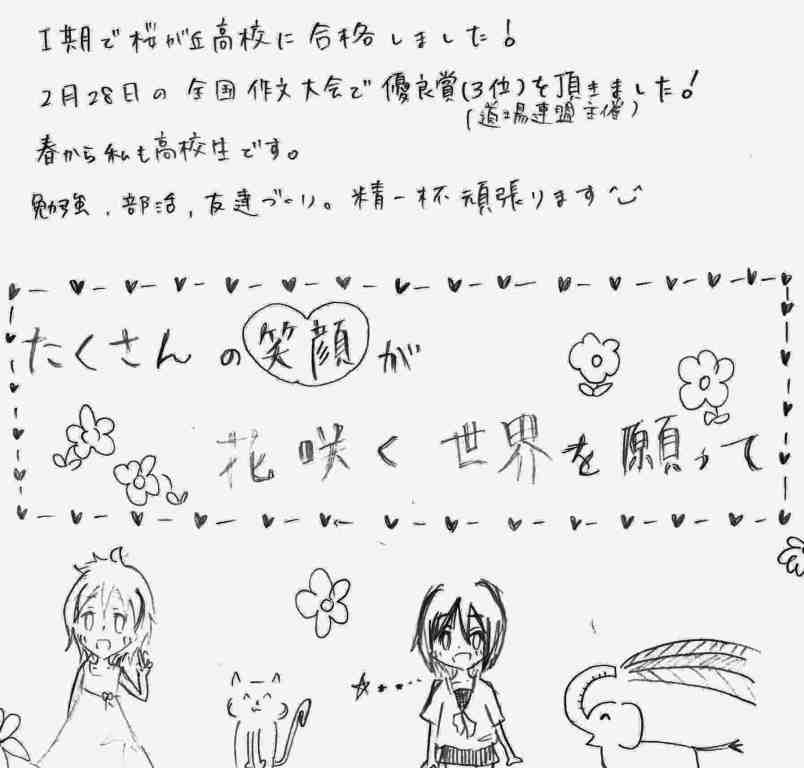 I期で桜が丘高校に合格しました!
2月28日の全国作文大会で優良賞(3位)を頂きました!
(道場連盟主催)
春から私も高校生です。
勉強、部活、友達づくり。精一杯頑張ります
たくさんの笑顔が
花咲く世界を願って